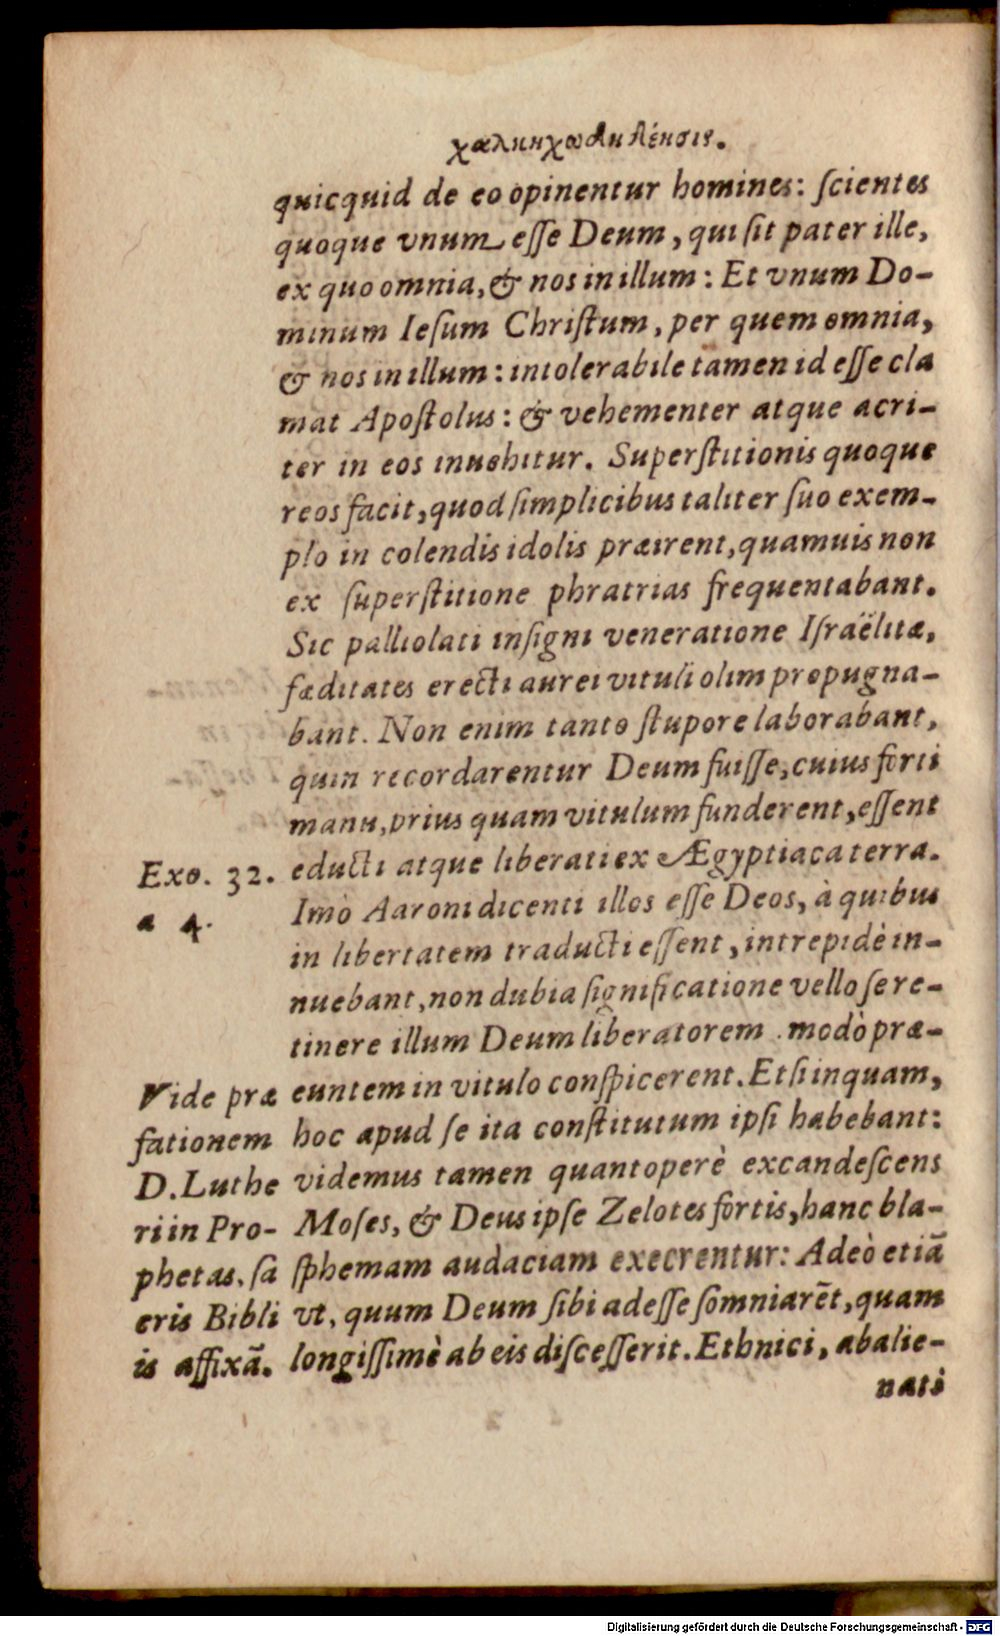 quicquid de eo opinentur homines: ſcientes
quoque vnum eſſe Deum, qui ſit pater ille,
ex quo omnia, & nos in illum: Et vnum Do-
minum Ieſum Chriſtum, per quem omnia,
& nos in illum: intolerabile tamen id eſſe cla
mat Apoſtolus: & vehementer atque acri-
ter in eos inuehitur. Superſtitionis quoque
reos facit, quod ſimplicibus taliter ſuo exem-
plo in colendis idolis præirent, quamuis non
ex ſuperſtitione phratrias frequentabant.
Sic palliolati inſigni veneratione Iſraëlitæ,
fæditates erecti aurei vituli olim propugna-
bant. Non enim tanto ſtupore laborabant,
quin recordarentur Deum fuiſſe, cuius forti
manu, prius quam vitulum funderent, eſſent
Exo. 32. educti atque liberati ex Ægyptiaca terra.
a 4. Imò Aaroni dicenti illos eſſe Deos, à quibus
in libertatem traducti eſſent, intrepidè in-
nuebant, non dubia ſignificatione velle ſe re-
tinere illum Deum liberatorem modò præ-
Vide præ euntem in vitulo conſpicerent. Etſi inquam,
fationem hoc apud ſe ita conſtitutum ipſi habebant:
D. Luthe videmus tamen quantoperè excandeſcens
ri in Pro- Moſes, & Deus ipſe Zelotes fortis, hanc bla-
phetas, ſa ſphemam audaciam execrentur: Adeò etiã
cris Bibli vt, quum Deum ſibi adeſſe ſomniarẽt, quam
is affixã. longiſſimè ab eis diſceſſerit. Ethnici, abalie-
nati
Digitalisierung gefördert durch die Deutsche Forschungsgemeinschaft - DFG